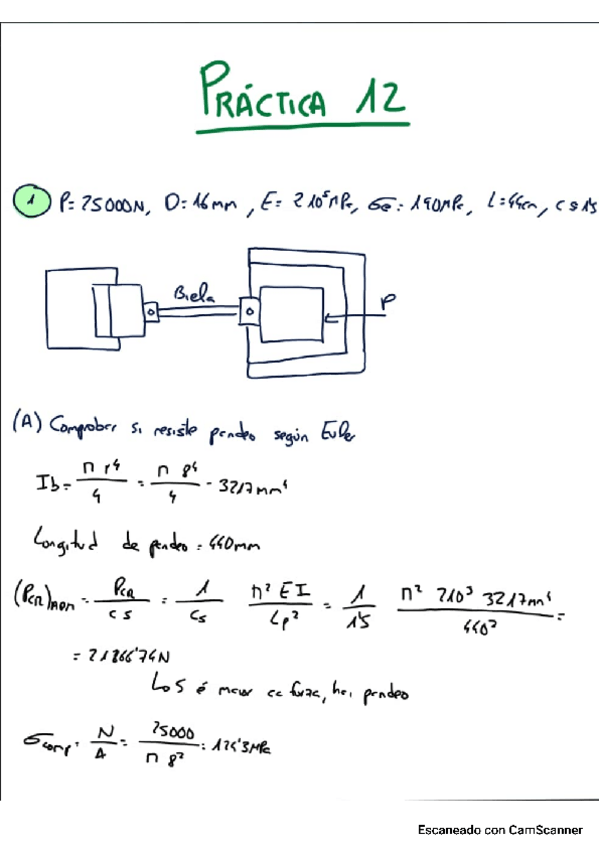 PRÁCTICA 12
1 P=25000N, D=16mm, E=2 10⁵MPa, σe=190MPa, L=44cm, cs 1'5
Biela
P
(A) Comprobar si resiste pandeo según Euler
Ib = π r⁴/4 = π 8⁴/4 = 3217mm⁴
Longitud de pandeo = 440mm
(Pcr)adm = Pcr/cs = 1/cs π² EI/Lp² = 1/1'5 π² 210³ 3217mm⁴/440² =
= 21866'74N
σcomp = N/A = 25000/π 8² = 124'3MPa
Escaneado con CamScanner